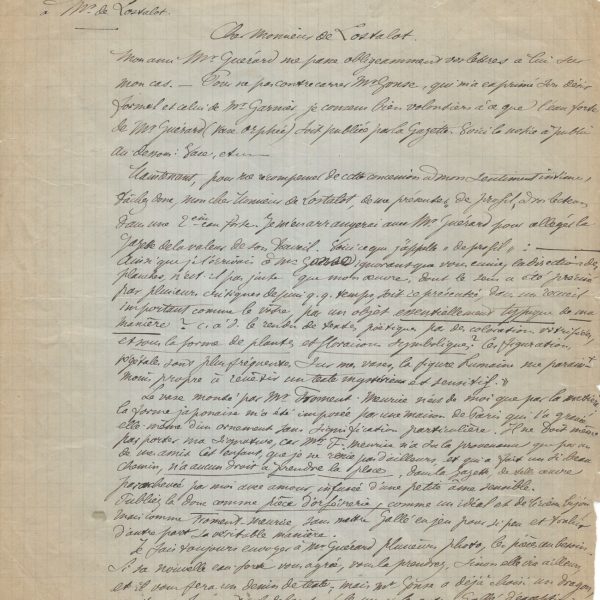 à Mr. de Lostalot.
Cher Monsieur de Lostalot.
Mon ami Mr. Guérard me passe obligeamment vos lettres à lui sur
mon cas. — Pour ne pas contrecarrer Mr Gonse, qui m'a exprimé son désir
formel et celui de Mr. Garnier, je consens bien volontiers à ce que l'eau forte
de Mr Guérard (vase orphée) soit publiée par la Gazette. Voici la notice à publier
au dessous : Vase, etc —
Maintenant, pour me récompenser de cette concession à mon sentiment intime,
tâchez donc, mon cher Monsieur de Lostalot, de me présenter, de profil, à vos lecteurs
dans une 2ème eau forte. Je m'en arrangerai avec Mr Guérard pour alléger la
Gazette de la valeur de son travail. Voici ce que j'appelle « de profil » :
Ainsi que je l'écrivais à Mr Gonse ignorant que vous aviez la direction des
planches, n'est-il pas juste que mon œuvre, dont le sens a été précisé
par plusieurs critiques depuis q.q. temps, soit représentée dans un recueil
important comme le vôtre par un objet essentiellement typique de ma
manière ? c. à d. le rendu de textes poétiques par des colorations vitrifiées
et sous la forme de plantes et floraisons symboliques ? les figurations
végétales sont plus fréquentes sur mes vases, la figure humaine me paraissant
moins propre à revêtir un texte mystérieux et sensitif. »
Le vase monté par Mr. Froment-Meurice n'est de moi que par la matière,
la forme japonaise m'a été imposée par une maison de Paris qui l'a gravé
elle même d'un ornement sans signification particulière. Il ne doit même
pas porter ma signature, car Mr F. Meurice n'a du la provenance que par un
de mes amis. Cet enfant, que je ne renie pas d'ailleurs, et qui a fait un si beau
chemin, n'a aucun droit à prendre la place dans la Gazette, de telle œuvre
parachevée par moi avec amour, infusée d'une petite âme sensible.
Publiez-la donc comme pièce d'orfèvrerie, comme un idéal et
mais comme Froment-Meurice, sans mettre Gallé en jeu pour si peu et traduisez
d'autre part sa véritable manière.
Je fais toujours envoyer à Mr Guérard plusieurs photos, les pièces au besoin.
Si sa nouvelle eau forte vous agrée, vous la prendrez, sinon elle ira ailleurs,
et il vous fera un dessin de texte ; mais Mr Gonse a déjà choisi un dragon,